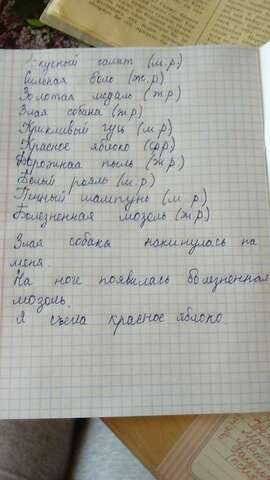 Вкусный салат (м.р)
Сильная боль (ж.р)
Золотая медаль (ж.р)
Злая собака (ж.р)
Крикливый гусь (м.р)
Красное яблоко (ср.р)
Дорожная пыль (ж.р)
Белый рояль (м.р)
Пенный шампунь (м.р)
Болезненная мозоль (ж.р)
Злая собака накинулась на
меня.
На ноги появилась болезненная
мозоль.
Я съела красное яблоко